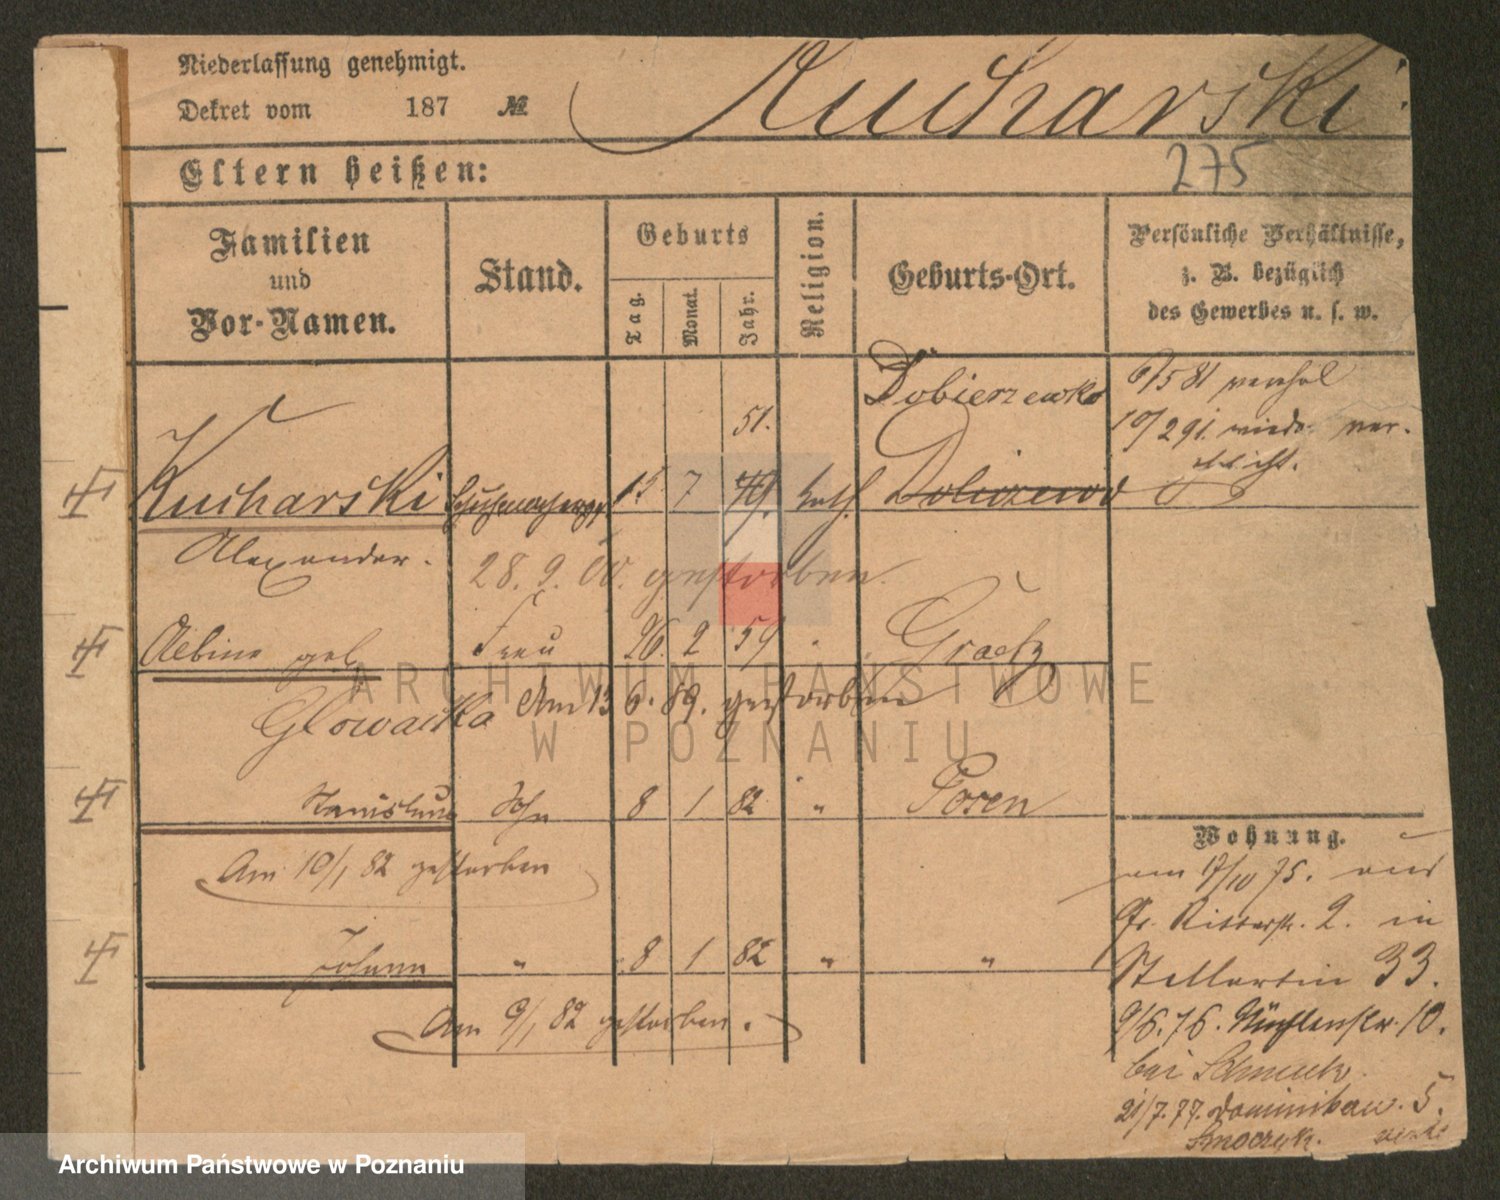 Niederlassung genehmigt.
Dekret vom 187 №
Kucharski
275
Eltern heißen:
Familien und Vor-Namen.
Stand.
Geburts
Tag.
Monat.
Jahr.
Religion.
Geburts-Ort.
Persönliche Verhältnisse,
z. B. bezüglich
des Gewerbes u. s. w.
Dobierzewko
6/5 81
51.
10/2 91.
Kucharski 15 7 49. kath.
Alexander.
28. 9. gestorben.
Albine geb. Frau 26. 2 59 " Graetz
Glowacka Am 13 6. 89. gestorben
Stanislaus Sohn 8 1 82 " Posen
Am 10/1 82 gestorben
Johann " 8 1 82 " "
Am 9/1 82 gestorben.
Wohnung.
am 17/10 75. aus
Gr. Ritterstr. 2. in
33.
9/6. 76. Mühlenstr. 10.
bei
21/7. 77. Dominikaw. 5.
Smoczyk.
ARCHIWUM PAŃSTWOWE
W POZNANIU
Archiwum Państwowe w Poznaniu